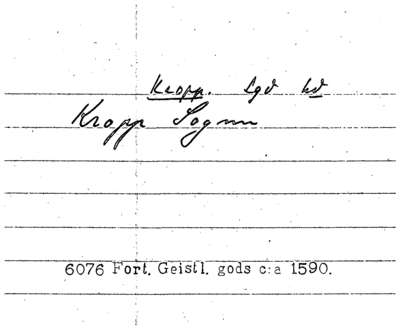 Kropp. Sgd hd
Kropp Sognn
6076 Fort. Geistl. gods c:a 1590.